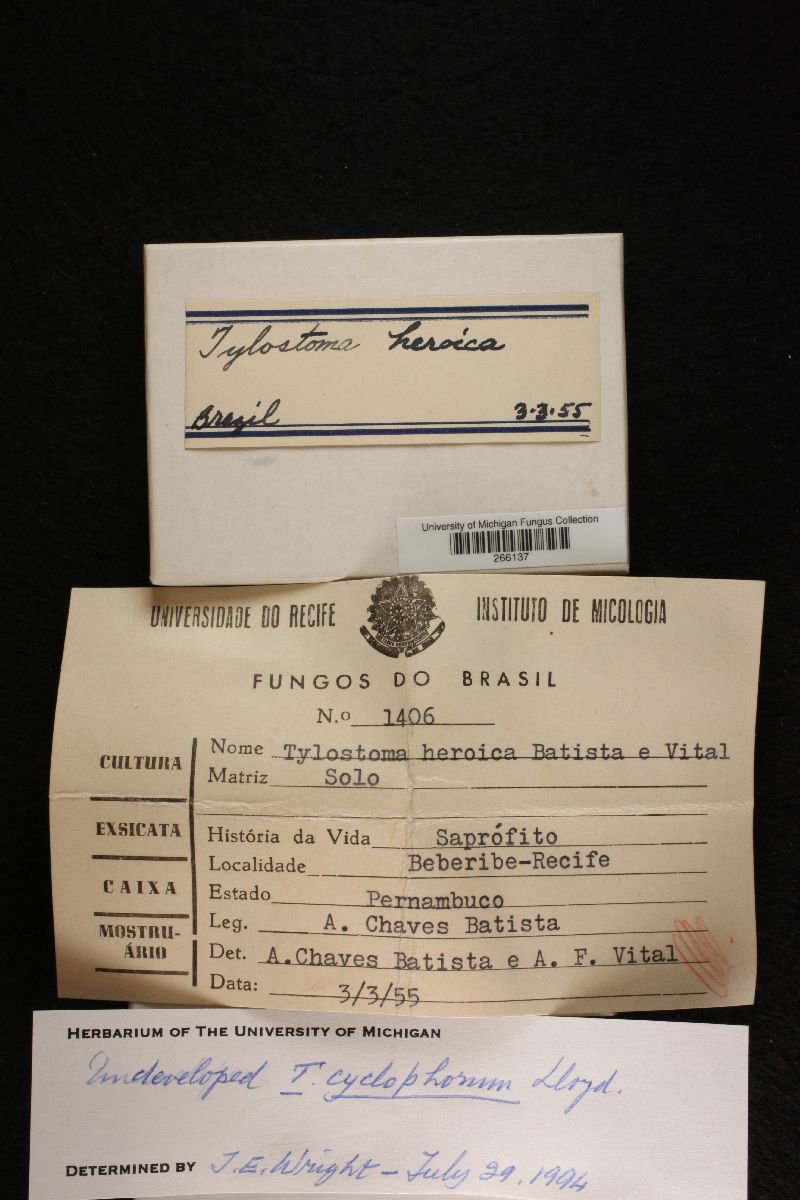 Tylostoma heroica
Brazil 3·3·55
University of Michigan Fungus Collection
266137
UNIVERSIDADE DO RECIFE INSTITUTO DE MICOLOGIA
FUNGOS DO BRASIL
N.o 1406
CULTURA
EXSICATA
CAIXA
MOSTRU-
ÁRIO
Nome Tylostoma heroica Batista e Vital
Matriz Solo
História da Vida Saprófito
Localidade Beberibe-Recife
Estado Pernambuco
Leg. A. Chaves Batista
Det. A.Chaves Batista e A. F. Vital
Data: 3/3/55
HERBARIUM OF THE UNIVERSITY OF MICHIGAN
Undeveloped T. cyclophorum Lloyd.
DETERMINED BY J.E. Wright - July 29, 1994